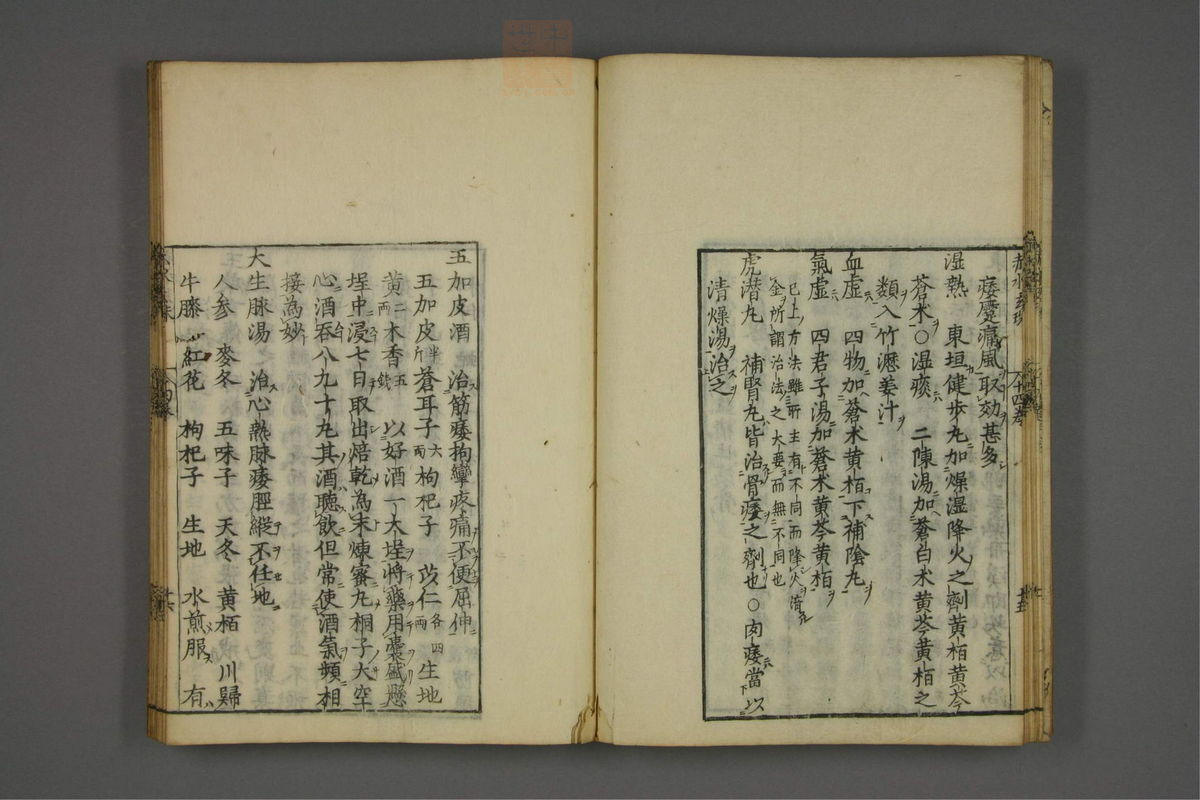 痿躄痛風取効甚多
湿熱　東垣健歩丸加燥湿降火之劑黄栢黄芩
蒼朮○湿痰　二陳湯加蒼白朮黄芩黄栢之
類入竹瀝姜汁
血虚　四物加蒼朮黄栢下補陰丸
氣虚　四君子湯加蒼朮黄芩黄栢
已上方法雖所主有不同而降火清
金所謂治法之大要而無不同也
虎潜丸　補腎丸皆治骨痿之劑也○肉痿當以
清燥湯治之
五加皮酒　治筋痿拘攣疼痛不便屈伸
五加皮半斤蒼耳子六両枸杞子　苡仁各四両生地
黄二両木香五錢　以好酒一大埕將藥用嚢盛懸
埕中浸七日取出焙乾為末煉蜜丸桐子大空
心酒吞八九十丸其酒聴飲但常使酒氣頻相
接為妙
大生脉湯　治心熱脉痿脛縱不任地
人参　麥冬　五味子　天冬　黄栢　川歸
牛膝　紅花　枸杞子　生地　水煎服　有